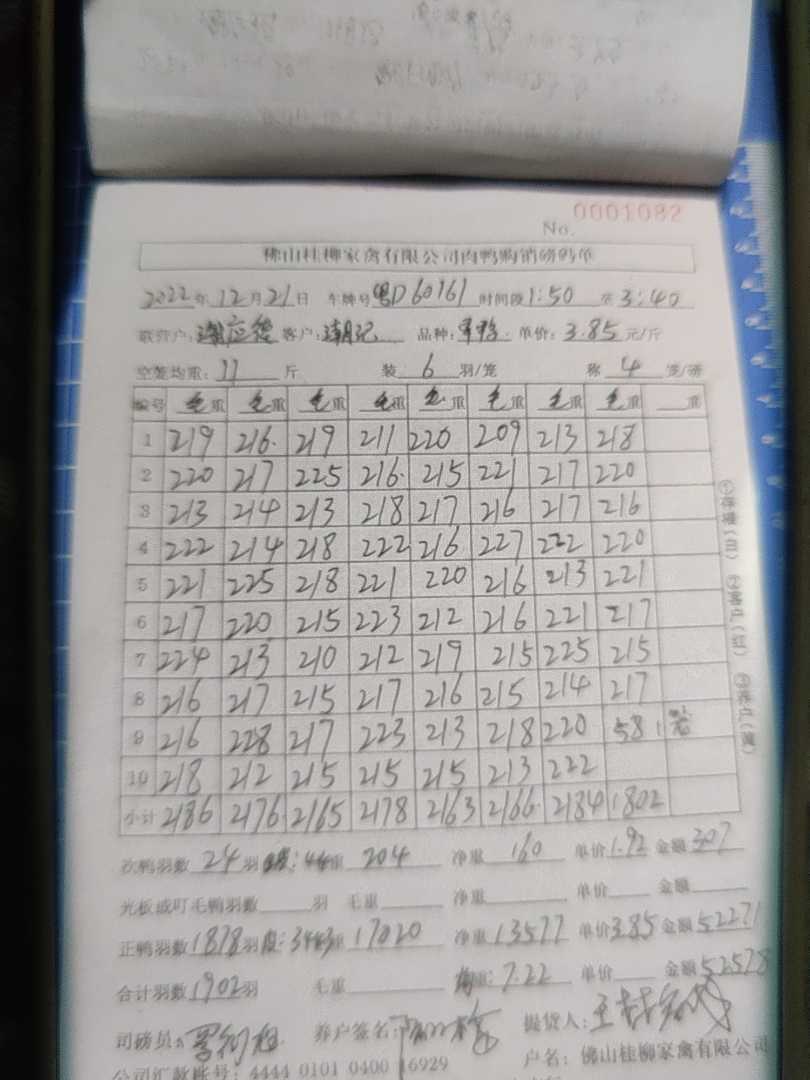 No. 0001082
佛山桂柳家禽有限公司肉鸭购销磅码单
2022年12月21日 车牌号粤D60161 时间段1:50至3:40
客户: 品种: 单价:3.85元/斤
空笼均重:11斤 装6羽/笼 称4笼/磅
编号 毛重 毛重 毛重 毛重 毛重 毛重 毛重 毛重 重
1 219 216 219 211 220 209 213 218
2 220 217 225 216 215 221 217 220
3 213 214 213 218 217 216 217 216
4 222 214 218 222 216 227 222 220
5 221 225 218 221 220 216 213 221
6 217 220 215 223 212 216 221 217
7 224 213 210 212 219 215 225 215
8 216 217 215 217 216 215 214 217
9 216 228 217 223 213 218 220 58 1笼
10 218 212 215 215 215 213 222
小计 2186 2176 2165 2178 2163 2166 2184 1802
①存根(白) ②客户(红) ③养户(黄)
次鸭羽数24羽 皮:44 重204 净重160 单价1.92 金额307
光板或叮毛鸭羽数 羽 毛重 净重 单价 金额
正鸭羽数1878羽 皮:3443 重17020 净重13577 单价3.85 金额52271
合计羽数1902羽 毛重 均重:7.22 单价 金额52578
司磅员: 养户签名: 提货人:
公司汇款账号:4444 0101 0400 16929 户名:佛山桂柳家禽有限公司